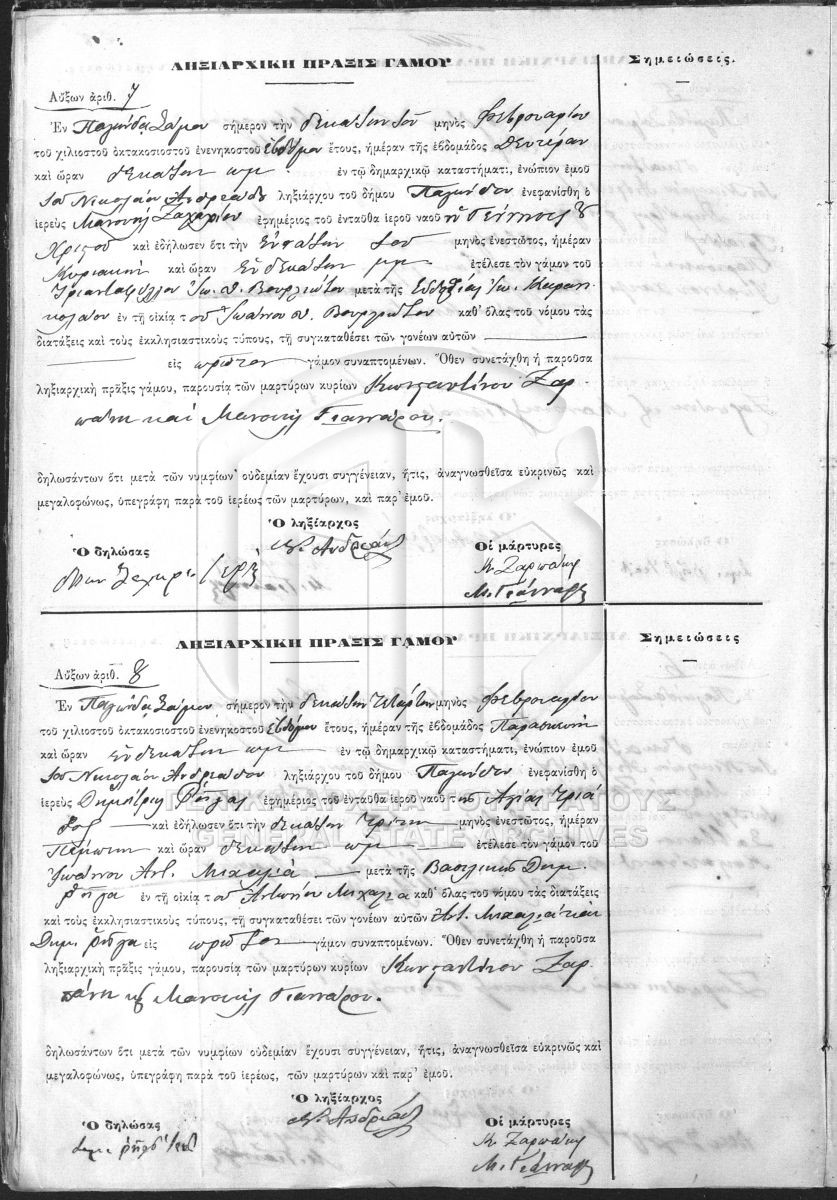 ΛΗΞΙΑΡΧΙΚΗ ΠΡΑΞΙΣ ΓΑΜΟΥ
Σημειώσεις.
Αὔξων ἀριθ. 7
Ἐν Παγώνδα Σάμου σήμερον τὴν δεκάτην του μηνὸς Φεβρουαρίου
τοῦ χιλιοστοῦ ὀκτακοσιοστοῦ ἐνενηκοστοῦ ἑβδόμου ἔτους, ἡμέραν τῆς ἑβδομάδος Δευτέραν
καὶ ὥραν δεκάτην πμ. ἐν τῷ δημαρχικῷ καταστήματι, ἐνώπιον ἐμοῦ
τοῦ Νικολάου Ἀνδρεάδου ληξιάρχου τοῦ δήμου Παγώνδου ἐνεφανίσθη ὁ
ἱερεὺς Μανουὴλ Ζαχαρίου ἐφημέριος τοῦ ἐνταῦθα ἱεροῦ ναοῦ ἡ Γέννησις τοῦ
Χριστοῦ καὶ ἐδήλωσεν ὅτι τὴν ἐνάτην τοῦ μηνὸς ἐνεστῶτος, ἡμέραν
Κυριακὴν καὶ ὥραν ἑνδεκάτην μμ. ἐτέλεσε τὸν γάμον τοῦ
Τριανταφύλλου Ἰω. Δ. Βουρλιώτου μετὰ τῆς Εὐδοξίας Ἰω. Καρανι-
κολάου ἐν τῇ οἰκίᾳ τοῦ Ἰωάννου Δ. Βουρλιώτου καθ᾽ ὅλας τοῦ νόμου τὰς
διατάξεις καὶ τοὺς ἐκκλησιαστικοὺς τύπους, τῇ συγκαταθέσει τῶν γονέων αὐτῶν
εἰς πρῶτον γάμον συναπτομένων. Ὅθεν συνετάχθη ἡ παροῦσα
ληξιαρχικὴ πρᾶξις γάμου, παρουσίᾳ τῶν μαρτύρων κυρίων Κωνσταντίνου Ζαρ-
πάνη καὶ Μανουὴλ Γιανναροῦ.
δηλωσάντων ὅτι μετὰ τῶν νυμφίων οὐδεμίαν ἔχουσι συγγένειαν, ἥτις, ἀναγνωσθεῖσα εὐκρινῶς καὶ
μεγαλοφώνως, ὑπεγράφη παρὰ τοῦ ἱερέως τῶν μαρτύρων, καὶ παρ᾽ ἐμοῦ.
Ὁ ληξίαρχος
Ν. Ἀνδρεάδης
Ὁ δηλώσας
Οἱ μάρτυρες
Κ. Ζαρπάνης
Μ. Γιάνναρος
ΛΗΞΙΑΡΧΙΚΗ ΠΡΑΞΙΣ ΓΑΜΟΥ
Σημειώσεις
Αὔξων ἀριθ. 8
Ἐν Παγώνδα Σάμου σήμερον τὴν δεκάτην τετάρτην μηνὸς Φεβρουαρίου
τοῦ χιλιοστοῦ ὀκτακοσιοστοῦ ἐνενηκοστοῦ ἑβδόμου ἔτους, ἡμέραν τῆς ἑβδομάδος Παρασκευὴν
καὶ ὥραν ἑνδεκάτην πμ. ἐν τῷ δημαρχικῷ καταστήματι, ἐνώπιον ἐμοῦ
τοῦ Νικολάου Ἀνδρεάδου ληξιάρχου τοῦ δήμου Παγώνδου ἐνεφανίσθη ὁ
ἱερεὺς Δημήτριος Ρήγας ἐφημέριος τοῦ ἐνταῦθα ἱεροῦ ναοῦ τῆς Ἁγίας Τριά
δος καὶ ἐδήλωσεν ὅτι τὴν δεκάτην τρίτην μηνὸς ἐνεστῶτος, ἡμέραν
Πέμπτην καὶ ὥραν δεκάτην πμ. ἐτέλεσε τὸν γάμον τοῦ
Ἰωάννου Ἀντ. Μιχαλιᾶ μετὰ τῆς Βασιλικῆς Δημ.
Ρήγα ἐν τῇ οἰκίᾳ τοῦ Ἀντωνίου Μιχαλιᾶ καθ᾽ ὅλας τοῦ νόμου τὰς διατάξεις
καὶ τοὺς ἐκκλησιαστικοὺς τύπους, τῇ συγκαταθέσει τῶν γονέων αὐτῶν Ἀντ. Μιχαλιᾶ καὶ
Δημ. Ρήγα εἰς πρῶτον γάμον συναπτομένων. Ὅθεν συνετάχθη ἡ παροῦσα
ληξιαρχικὴ πρᾶξις γάμου, παρουσίᾳ τῶν μαρτύρων κυρίων Κωνσταντίνου Ζαρ-
πάνη κ Μανουὴλ Γιανναροῦ.
δηλωσάντων ὅτι μετὰ τῶν νυμφίων οὐδεμίαν ἔχουσι συγγένειαν, ἥτις, ἀναγνωσθεῖσα εὐκρινῶς καὶ
μεγαλοφώνως, ὑπεγράφη παρὰ τοῦ ἱερέως, τῶν μαρτύρων καὶ παρ᾽ ἐμοῦ.
Ὁ ληξίαρχος
Ν. Ἀνδρεάδης
Ὁ δηλώσας
Οἱ μάρτυρες
Κ. Ζαρπάνης
Μ. Γιάνναρος
ΓΕΝΙΚΑ ΑΡΧΕΙΑ ΤΟΥ ΚΡΑΤΟΥΣ
GENERAL STATE ARCHIVES